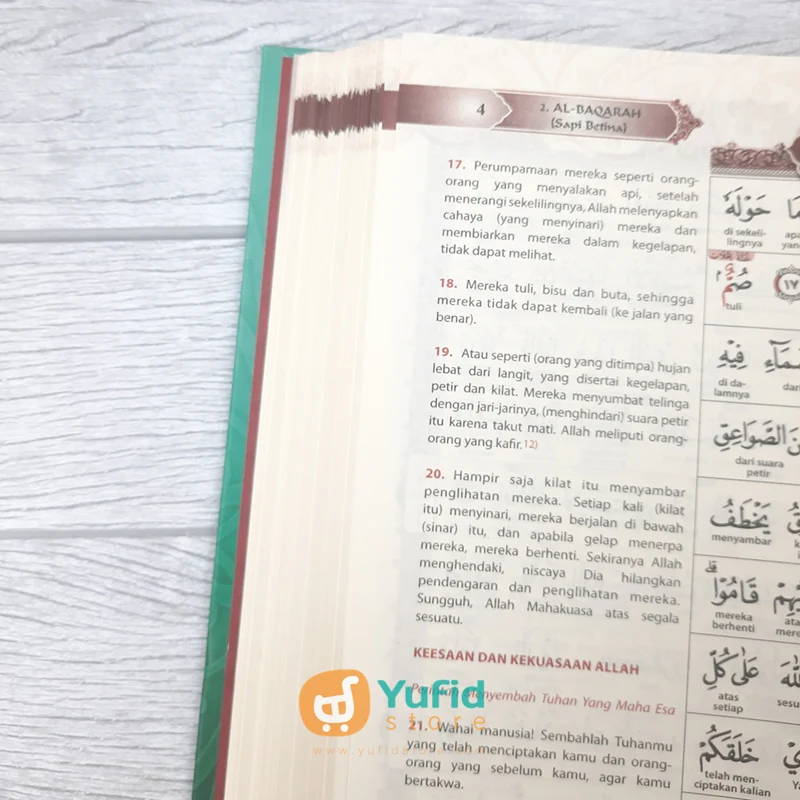 4
2. AL-BAQARAH
(Sapi Betina)
17. Perumpamaan mereka seperti orang-
orang yang menyalakan api, setelah
menerangi sekelilingnya, Allah melenyapkan
cahaya (yang menyinari) mereka dan
membiarkan mereka dalam kegelapan,
tidak dapat melihat.
18. Mereka tuli, bisu dan buta, sehingga
mereka tidak dapat kembali (ke jalan yang
benar).
19. Atau seperti (orang yang ditimpa) hujan
lebat dari langit, yang disertai kegelapan,
petir dan kilat. Mereka menyumbat telinga
dengan jari-jarinya, (menghindari) suara petir
itu karena takut mati. Allah meliputi orang-
orang yang kafir.12)
20. Hampir saja kilat itu menyambar
penglihatan mereka. Setiap kali (kilat
itu) menyinari, mereka berjalan di bawah
(sinar) itu, dan apabila gelap menerpa
mereka, mereka berhenti. Sekiranya Allah
menghendaki, niscaya Dia hilangkan
pendengaran dan penglihatan mereka.
Sungguh, Allah Mahakuasa atas segala
sesuatu.
KEESAAN DAN KEKUASAAN ALLAH
Perintah Menyembah Tuhan Yang Maha Esa
21. Wahai manusia! Sembahlah Tuhanmu
yang telah menciptakan kamu dan orang-
orang yang sebelum kamu, agar kamu
bertakwa.
حَوْلَهُ
di sekeli-
lingnya
صُمٌّ
١٧
tuli
فِيْهِ
di da-
lamnya
الصَّوَاعِقِ
dari suara
petir
يَخْطَفُ
menyambar
قَامُوْا
mereka
berhenti
عَلٰى كُلِّ
atas
setiap
خَلَقَكُمْ
telah men-
ciptakan kalian
Yufid
store